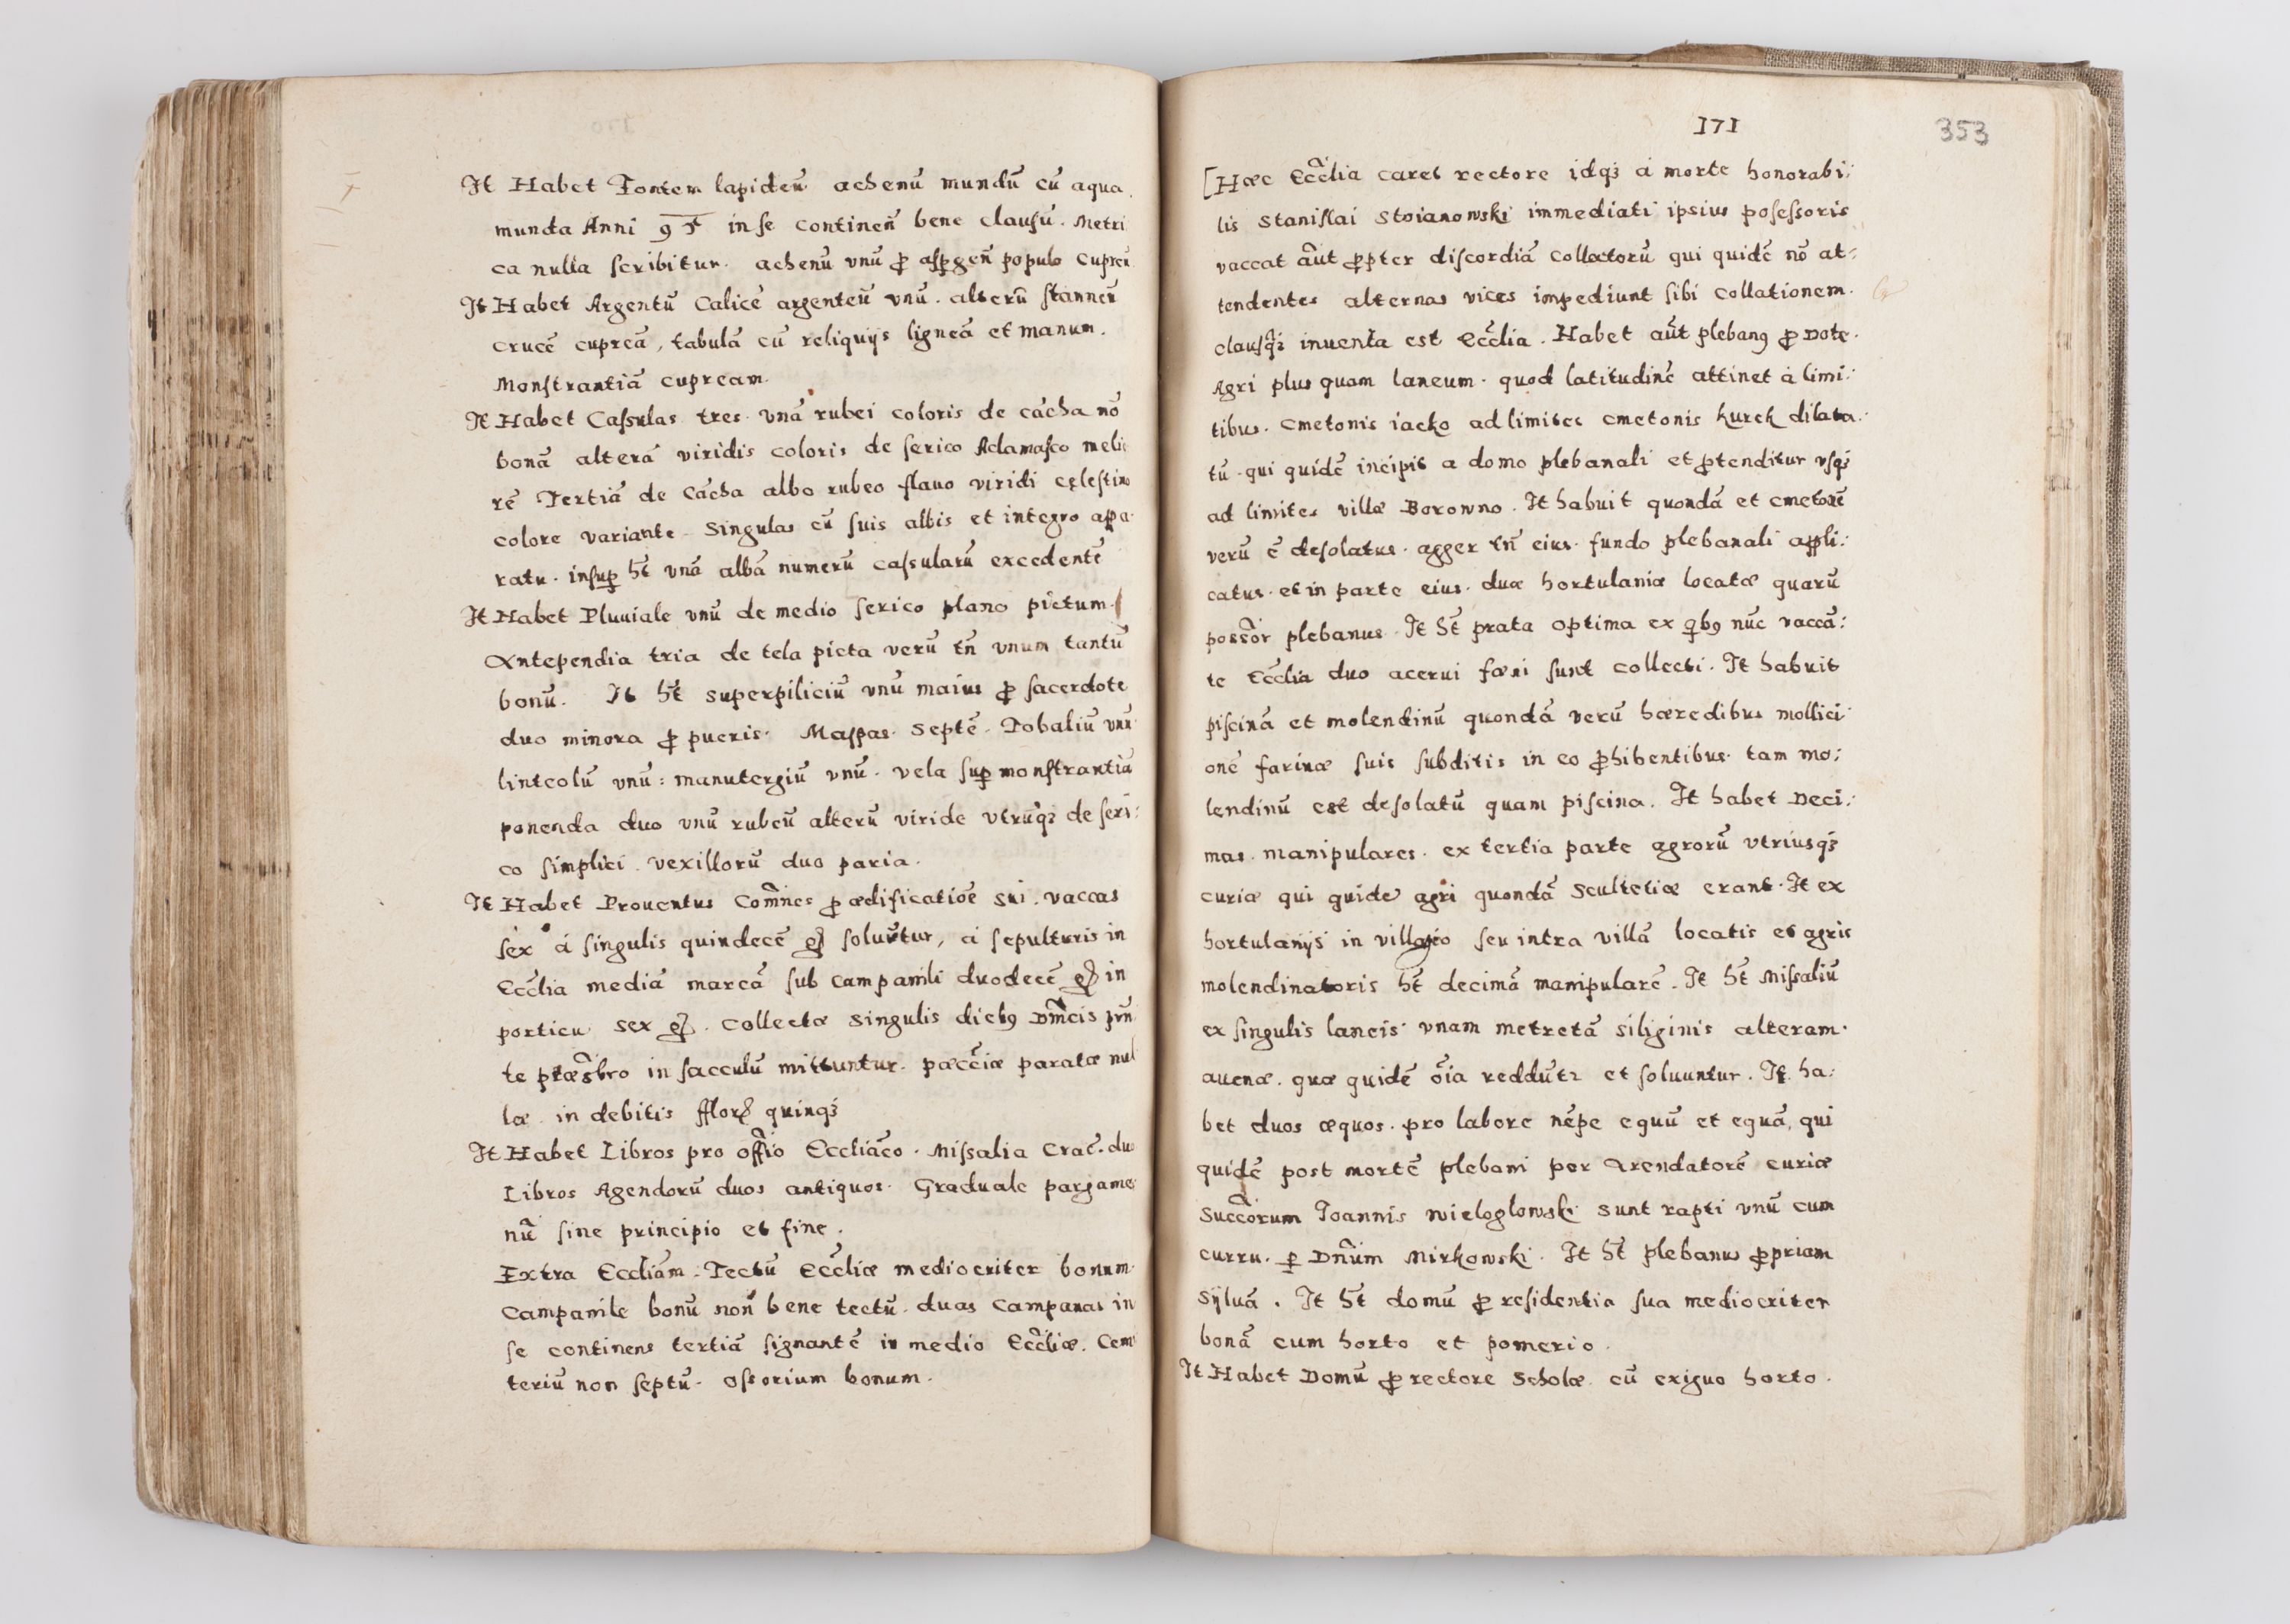 It Habet Fontem lapideũ achenũ mundũ cũ aqua
munda Anni in se continẽn bene clausũ. Metri
ca nulla scribitur. achenũ vnũ ꝓ aspgeñ populo cupreũ
It Habet Argentũ Calicẽ argenteũ vnũ. alterũ stanneũ
crucẽ cupreã, tabulã cũ reliquijs ligneã et manum.
Monstrantiã cupream.
It Habet Casulas tres. vnã rubei coloris de cacha nõ
bonã alterã viridis coloris de serico Adamasco melio
rẽ Tertiã de cacha albo rubeo flauo viridi cęlestino
colore variante. Singulas cũ suis albis et integro appa
ratu. insuꝑ ht̃ vnã albã numerũ casularũ excedentẽ
It Habet Pluuiale vnũ de medio serico plano pictum.
Antependia tria de tela picta verũ tñ vnum tantũ
bonũ. It ht̃ superpiliciũ vnũ maius ꝓ sacerdote
duo minora ꝓ pueris. Mappas septẽ. Tobaliũ vnũ
linteolũ vnũ: manutergiũ vnũ. vela suꝑ monstrantiã
ponenda duo vnũ rubeũ alterũ viride vtrũqȝ de seri:
co simplici. vexillorũ duo paria.
It Habet Prouentus Com̃nes ꝓ ædificatiõe sui. vaccas
sex á singulis quindecẽ gͬ soluũtur, á sepulturis in
Ecc̃lia mediã marcã sub campanili duodecẽ gͬ in
porticu sex gͬ. Collectæ singulis diebꝰ Dm̃cis prñ
te præsb̃ro in sacculũ mittuntur. pæcc̃iæ paratæ nul
læ. in debitis fflor quinqȝ
It Habet Libros pro offĩo Eccliãco. Missalia Crac̃. duo
Libros Agendorũ duos antiquos. Graduale pargame
nũ sine principio et fine.
Extra Eccliãm. Tectũ Ecc̃liæ mediocriter bonum.
Campanile bonũ non bene tectũ. duas campanas in
se continens tertiã signantẽ in medio Ecc̃liæ. Cem
teriũ non septũ. Ossorium bonum.
171
353
[Hæc Ecc̃lia caret rectore idqȝ á morte honorabi:
lis Stanislai Stoianowski immediati ipsius possessoris
vaccat aũt ꝓpter discordiã collatorũ qui quidẽ nõ at:
tendentes alternas vices impediunt sibi collationem.
clausqȝ inuenta est Ecc̃lia. Habet aũt plebanꝰ ꝓ Dote.
Agri plus quam laneum. quod latitudinẽ attinet á limi:
tibus. cmetonis iacko ad limites cmetonis kurek dilata:
tũ. qui quidẽ incipit a domo plebanali et ꝓtenditur vsqȝ
ad limites villæ Borowno. It habuit quondã et cmetonẽ
verũ ẽ desolatus. agger tñ eius. fundo plebanali appli:
catus. et in parte eius. duæ hortulaniæ locatæ quarũ
possor̃ plebanus. It ht̃ prata optima ex qibꝰ nũc vaccã:
te Ecc̃lia duo acerui fœni sunt collecti. It habuit
piscinã et molendinũ quondã verũ hæredibus mollici
onẽ farinæ suis subditis in eo ꝓhibentibus. tam mo:
lendinũ est desolatũ quam piscina. It habet Deci:
mas. manipulares. ex tertia parte agrorũ vtriusqȝ
curiæ qui quide agri quondã Scultetiæ erant. It ex
hortulanijs in villagio seu intra villã locatis et agris
molendinatoris ht̃ decimã manipularẽ. It ht̃ Missaliũ
ex singulis laneis. vnam metretã siliginis alteram.
auenæ. quæ quidẽ oĩa reddũtr et soluuntur. It ha:
bet duos æquos. pro labore nẽpe equũ et equã, qui
quidẽ post mortẽ plebani per Arendatorẽ curiæ
succõrum Joannis wieloglowski sunt rapti vnũ cum
curru. ꝑ Dnũm Mirkowski. It ht̃ plebanus ꝓpriam
syluã. It ht̃ domũ ꝓ residentia sua mediocriter
bonã cum horto et pomerio.
It Habet Domũ ꝓ rectore Scholæ. cũ exiguo horto.